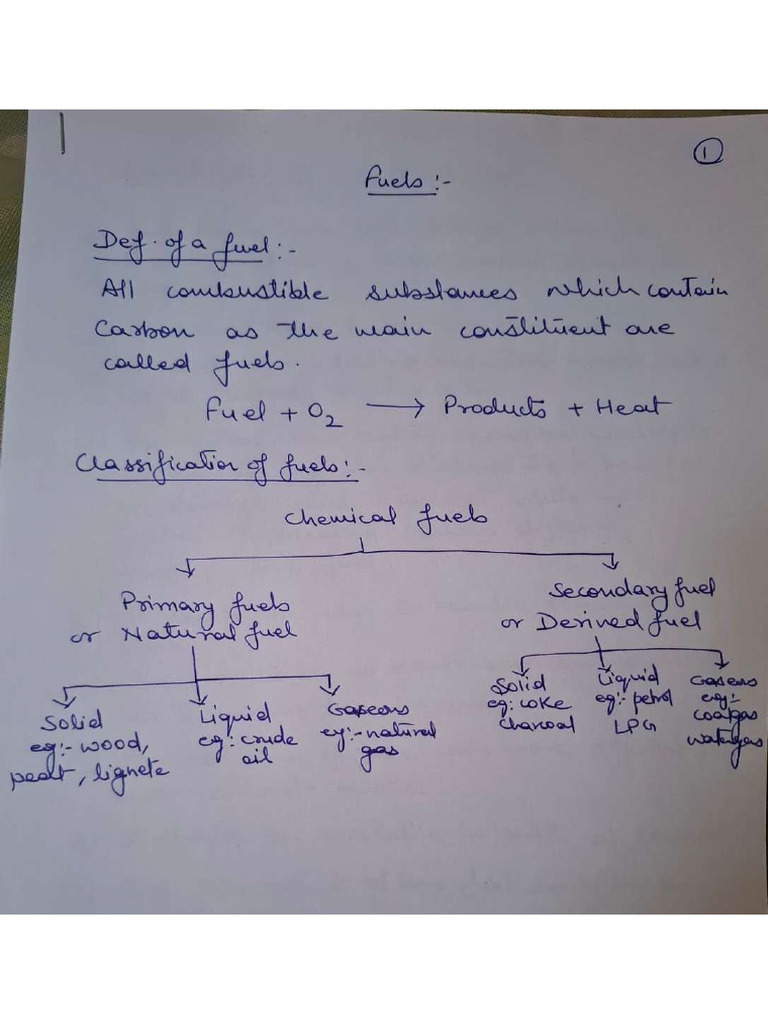 1
Fuels :-
Def. of a fuel :-
All combustible substances which contain
Carbon as the main constituent are
called fuels.
Fuel + O2 → Products + Heat
Classification of fuels :-
Chemical fuels
Primary fuels
or Natural fuel
Secondary fuel
or Derived fuel
Solid
eg :- wood,
peat, lignete
Liquid
eg : crude
oil
Gaseous
eg :- natural
gas
Solid
eg : coke
charcoal
Liquid
eg :- petrol
LPG
Gaseous
eg :-
coalgas
watergas